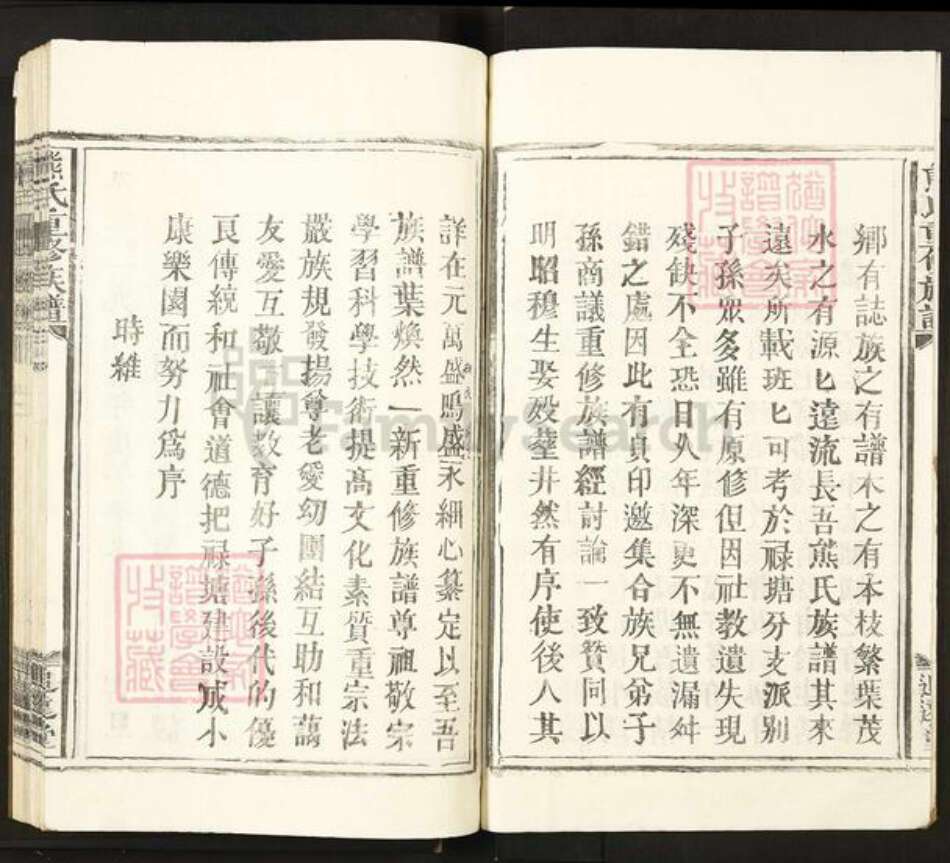 鄉有誌族之有譜木之有本枝繁葉茂
水之有源匕遠流長吾熊氏族譜其來
遠矣所載班匕可考於祿塘分支派別
子孫眾多雖有原修但因社教遺失現
殘缺不全恐日久年深更不無遺漏舛
錯之處因此有貞印邀集合族兄弟子
孫商議重修族譜經討論一致贊同以
明昭穆生娶歿塟井然有序使後人其
詳在元萬盛鳴盛永細心纂定以至吾
族譜葉煥然一新重修族譜尊祖敬宗
學習科學技術提高文化素質重宗法
嚴族規發揚尊老愛幼團結互助和藹
友愛互敬互讓教育好子孫後代的優
良傳統和社會道德把祿塘建設成小
康樂園而努力為序
時雜
熊氏重修族譜
FamilySearch
譜學會
收藏